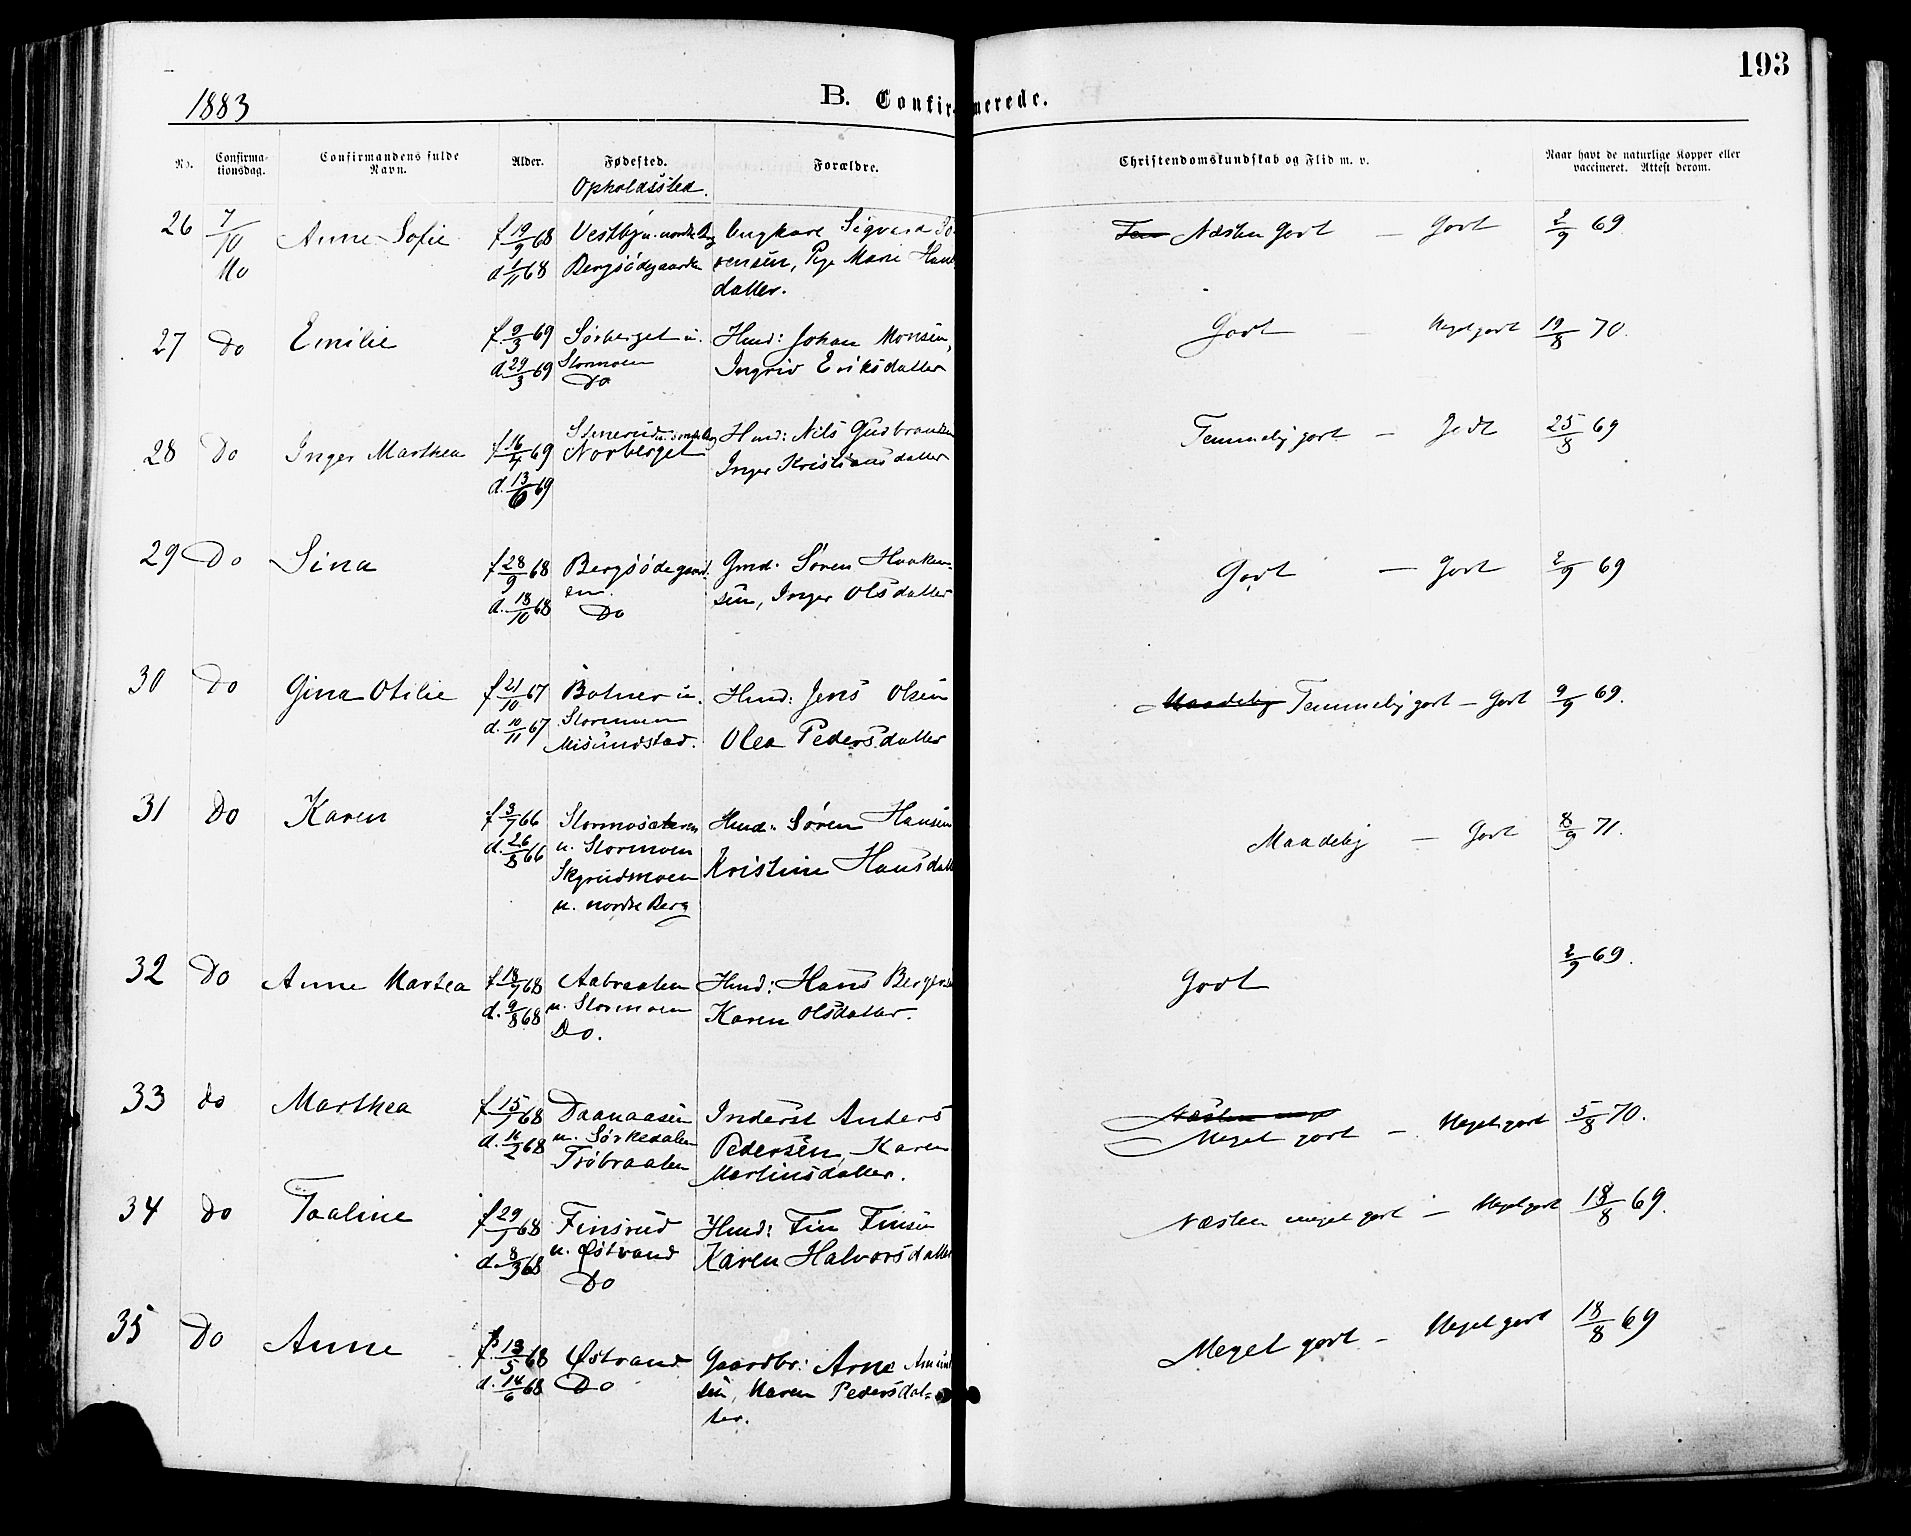 193
1883
B. Confirmerede.
No.
Confirma-
tionsdag.
Confirmandens fulde
Navn.
Alder.
Fødested.
Opholdssted.
Forældre.
Christendomskundskab og Flid m. v.
Naar havt de naturlige Kopper eller
vaccineret. Attest derom.
26 7/10 Anne Sofie f 19/9 68 Vestby u. nordre Berg Ungkarl Sigvard Næsten Godt – Godt 2/9 69
Mo d 1/11 68 Bergsödegaarden rensen, Pige Marie Hans
datter.
27 Do Emilie f. 9/3 69 Sørberget u. Hmd: Johan Monsen, Godt – Meget godt 19/8 70.
d. 29/3 69 Stormoen Ingrid Eriksdatter
Do
28 Do Inger Marthea f. 16/4 69 Hmd: Nils Gudbrandsen Temmelig godt – Godt 25/8 69
d. 13/6 69 Norberget Inger Kristiansdatter
29 Do Sina f 28/9 68 Bergsödegaard- Gmd. Sören Haaken- Godt – Godt 2/9 69
d. 18/10 68 en. sen, Inger Olsdatter
Do
30 Do Gina Otilie f 21/10 67 Botner u. Hmd: Jens Olsen Maadelig Temmelig godt – Godt 9/9 69.
d. 10/11 67 Stormoen Olea Pedersdatter
Misundstad.
31 Do Karen f 3/7 66 Stormosæteren Hmd: Sören Hansen Maadelig – Godt 8/9 71.
d. 26/8 66 u. Stormoen Kristine Hansdatt
Skyrudmoen
u. nordre Berg
32 Do Anne Martea f 18/7 68 Aabraaten Hmd: Hans Bergersen Godt 2/9 69.
d. 9/8 68 u. Stormoen Karen Olsdatter.
Do.
33 do Marthea f 15/1 68 Daanaasen Inderst Anders Næsten meget
d. 16/2 68 u. Sørkedalen Pedersen, Karen Meget godt – Meget godt 5/8 70.
Tröbraaten Martinsdatter.
34 Do Taaline f 29/1 68 Finsrud Hmd: Fin Finsen Næsten meget godt – Meget godt 18/8 69.
d. 8/3 68 u. Østrand Karen Halvorsdatter
Do
35 Do Anne f 13/5 68 Østrand Gaardbr: Arne Amund Meget godt – Meget godt 18/8 69
d. 14/6 68 Do sen, Maren Pedersdat-
ter.